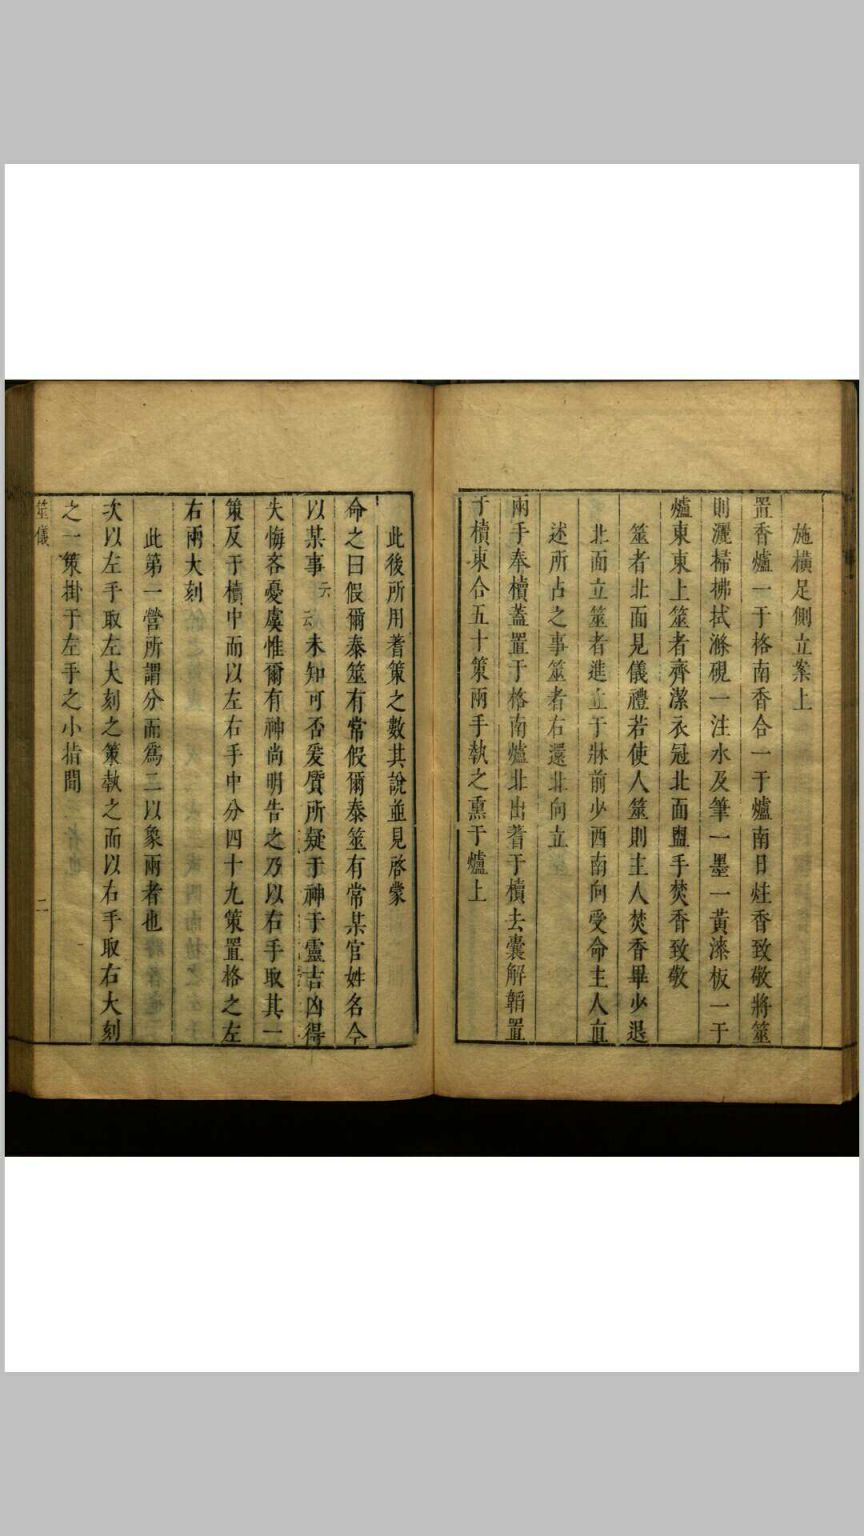 施橫足側立案上
置香爐一于格南香合一于爐南日炷香致敬將筮
則灑掃拂拭滌硯一注水及筆一墨一黃漆板一于
爐東東上筮者齊潔衣冠北面盥手焚香致敬
筮者北面見儀禮若使人筮則主人焚香畢少退
北面立筮者進立于牀前少西南向受命主人直
述所占之事筮者右還北向立
兩手奉櫝蓋置于格南爐北出蓍于櫝去囊解韜置
于櫝東合五十策兩手執之熏于爐上
此後所用蓍策之數其說並見啓蒙
命之曰假爾泰筮有常假爾泰筮有常某官姓名今
以某事云云未知可否爰質所疑于神于靈吉凶得
失悔吝憂虞惟爾有神尚明告之乃以右手取其一
策反于櫝中而以左右手中分四十九策置格之左
右兩大刻
此第一營所謂分而爲二以象兩者也
次以左手取左大刻之策執之而以右手取右大刻
之一策掛于左手之小指間
筮儀
二